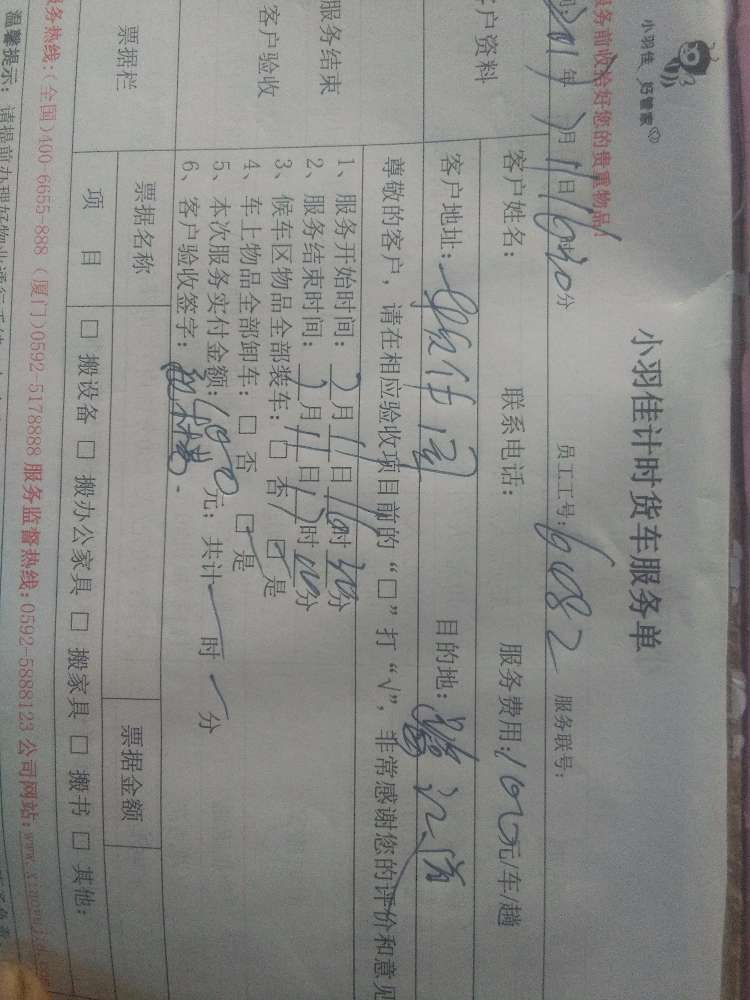 小羽佳 好管家
小羽佳计时货车服务单
服务前收拾好您的贵重物品！
年 月11日16时30分 员工工号：6082 服务联号：
客户资料
客户姓名： 联系电话： 服务费用：100元/车/趟
客户地址： 目的地：
尊敬的客户，请在相应验收项目前的“□”打“√”，非常感谢您的评价和意见
服务结束
客户验收
1、服务开始时间：2月11日16时30分
2、服务结束时间：2月11日17时00分
3、候车区物品全部装车：□ 否 ☑ 是
4、车上物品全部卸车：□ 否 ☑ 是
5、本次服务实付金额：100元；共计 时 分
6、客户验收签字：
票据栏
票据名称 票据金额
项目 □ 搬设备 □ 搬办公家具 □ 搬家具 □ 搬书 □ 其他：
服务热线：（全国）400-6655-888 （厦门）0592-5178888 服务监督热线：0592-5888123 公司网站：
温馨提示：请提前办理好物业通行手续